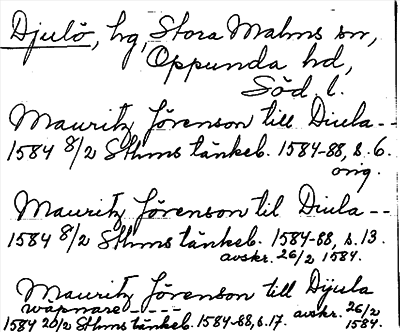 Djulö, hg, Stora Malms sn,
Oppunda hd,
Söd. l.
Mauritz Jörenson till Diula --
1584 8/2 Sthms tänkeb. 1584-88, s. 6.
orig.
Mauritz Jörenson til Diula --
1584 8/2 Sthms tänkeb. 1584-88, s. 13.
avskr. 26/2 1584.
Mauritz Jörenson till Dijula
wäpnare - - - -
1584 20/2 Sthms tänkeb. 1584-88, s. 17. avskr. 26/2 1584.